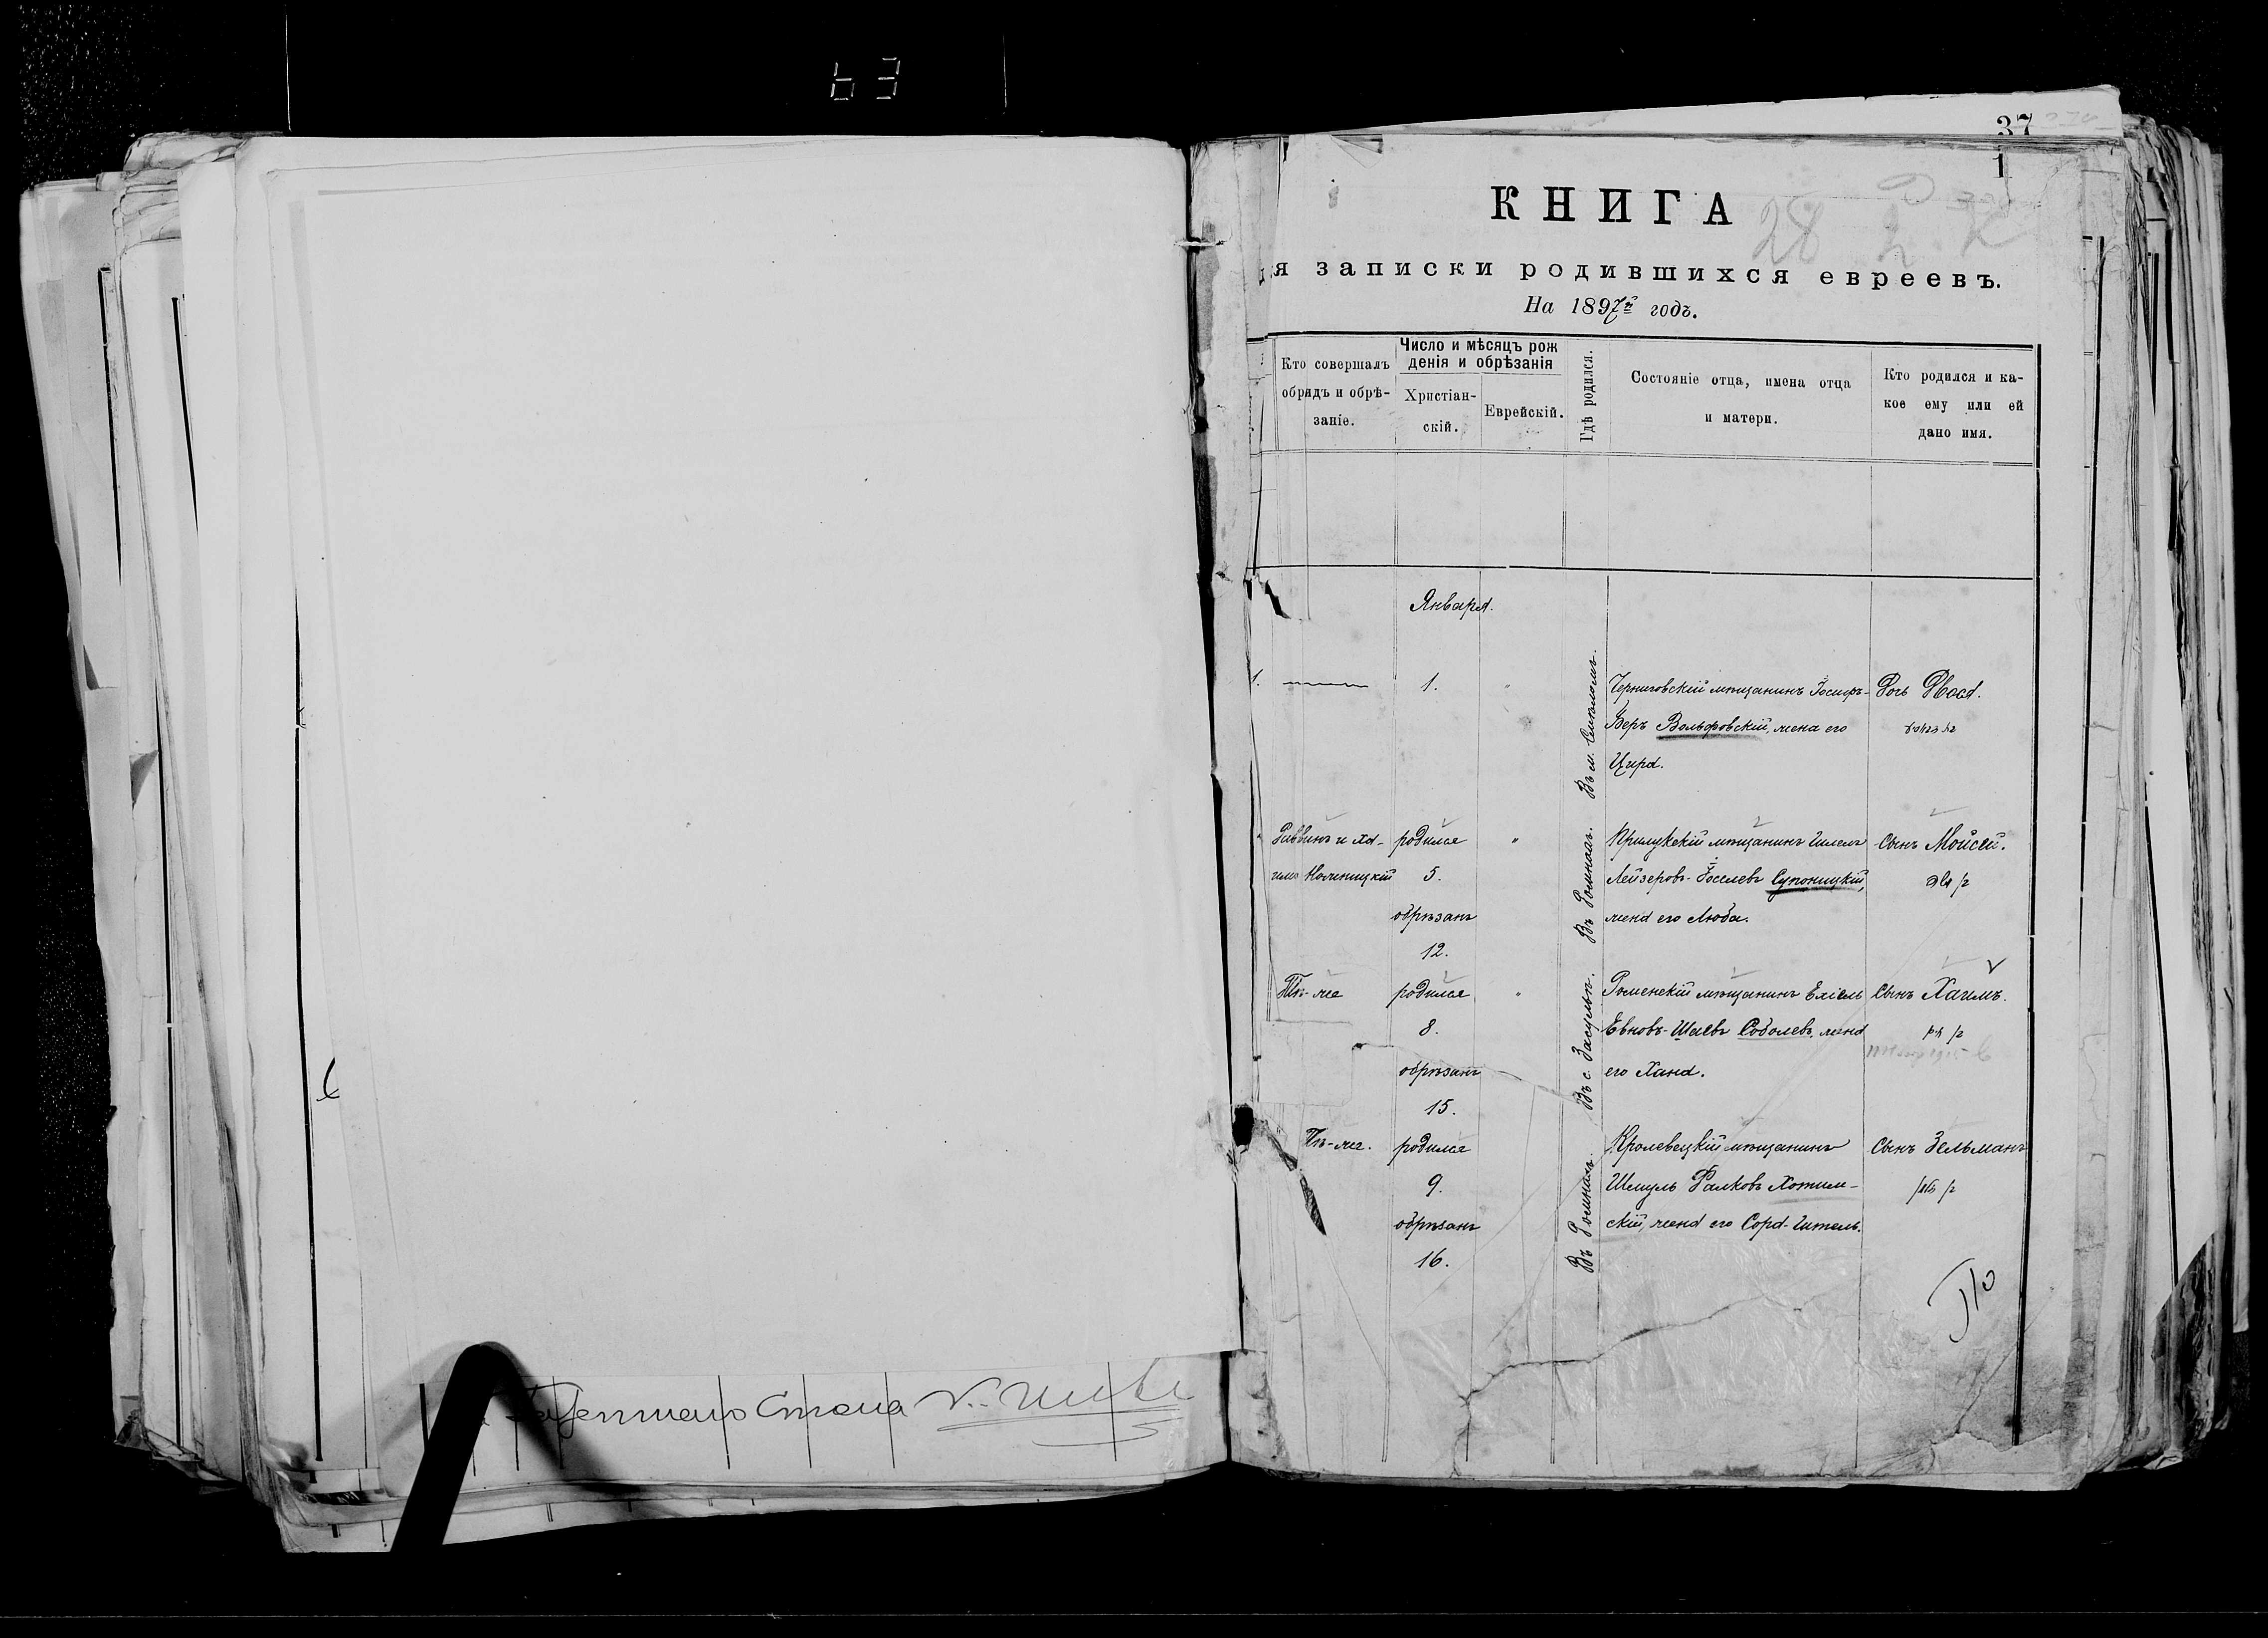 63
37
1
КНИГА
28
я записки родившихся евреевъ.
На 1897й годъ.
Кто совершалъ обрядъ и обрѣзаніе.
Число и мѣсяцъ рожденія и обрѣзанія
Христіанскій.
Еврейскій.
Гдѣ родился.
Состояніе отца, имена отца и матери.
Кто родился и какое ему или ей дано имя.
Января.
1.
1.
"
Черниговскій мѣщанинъ Іосифъ-
Беръ Вольфовскій, жена его
Цира.
Дочь Двося.
Раввинъ и хаимъ
родился
5.
обрѣзанъ
12.
"
Въ Ромнахъ.
Прилукскій мѣщанинъ Гилелъ
Лейзеровъ-Іоселевъ Супоницкій,
жена его Люба.
Сынъ Мойсей.
Тѣ-же
родился
8.
обрѣзанъ
15.
"
Въ с. Засульѣ.
Роменскій мѣщанинъ Ехіель
Евновъ-Шаевъ Соболевъ, жена
его Хана.
Сынъ Хаимъ.
Тѣ-же.
родился
9.
обрѣзанъ
16.
Въ Ромнахъ.
Кролевецкій мѣщанинъ
Шмуль Фалковъ Хотим-
скій, жена его Сора-Гитель.
Сынъ Зельманъ